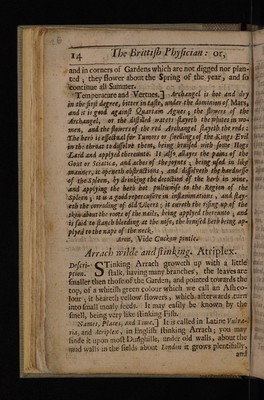 14 The Brittish Physician: or,
and in corners of Gardens which are not digged nor plan-
ted; they flower about the Spring of the year, and so
continue all Summer.
Temperature and Vertues.] Archangel is hot and dry
in the first degree, bitter in taste, under the dominion of Mars,
and it is good against Quartain Agues; the flowers of the
Archangel, or the distilled water stayeth the whites in wo-
men, and the flowers of the red Archangel stayeth the reds:
The herb is effectual for Tumors or swelling of the Kings Evil
in the throat to dissolve them, being bruised with some Hogs
Lard and applyed thereunto. It also allayes the pains of the
Gout or Sciatica, and aches of the joynts; being used in like
manner, it openeth obstructions, and dissolveth the hardness
of the Spleen, by drinking the decoction of the herb in wine,
and applying the herb hot pultiswise to the Region of the
Spleen; it is a good repercussive in inflammations, and stay-
eth the corroding of old Ulcers; it cureth the rising up of the
skin about the roots of the nails, being applyed thereunto; and
is said to stanch bleeding at the nose, the bruised herb being ap-
plyed to the nape of the neck.
Aron, Vide Cuckow pintle.
Arrach wilde and stinking. Atriplex.
Descri- STinking Arrach groweth up with a little
ption. stalk, having many branches, the leaves are
smaller then those of the Garden, and pointed towards the
top, of a whitish green colour which we call an Ash co-
lour; it beareth yellow flowers, which afterwards turn
into small mealy seeds. It may easily be known by the
smell, being very like stinking Fish.
Names, Places, and Time.] It is called in Latine
ria, and Atriplex, in English stinking Arrach; you may
finde it upon most Dunghills, under old walls, about the
mud walls in the fields about London it grows plentifully,
and